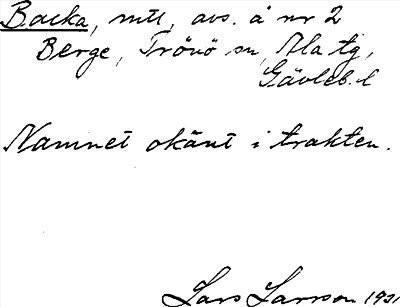 Backa, mtl, avs. å nr 2
Berge, Trönö sn, Ala tg,
Gävleb. l
Namnet okänt i trakten.
Lars Larsson 1931